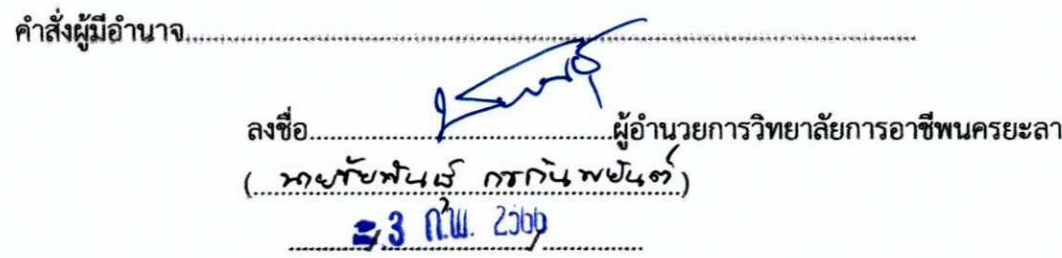 คำสั่งผู้มีอำนาจ........................................................................
ลงชื่อ..............................ผู้อำนวยการวิทยาลัยการอาชีพนครยะลา
( นายชัยพันธุ์ )
- 3 ก.พ. 2566